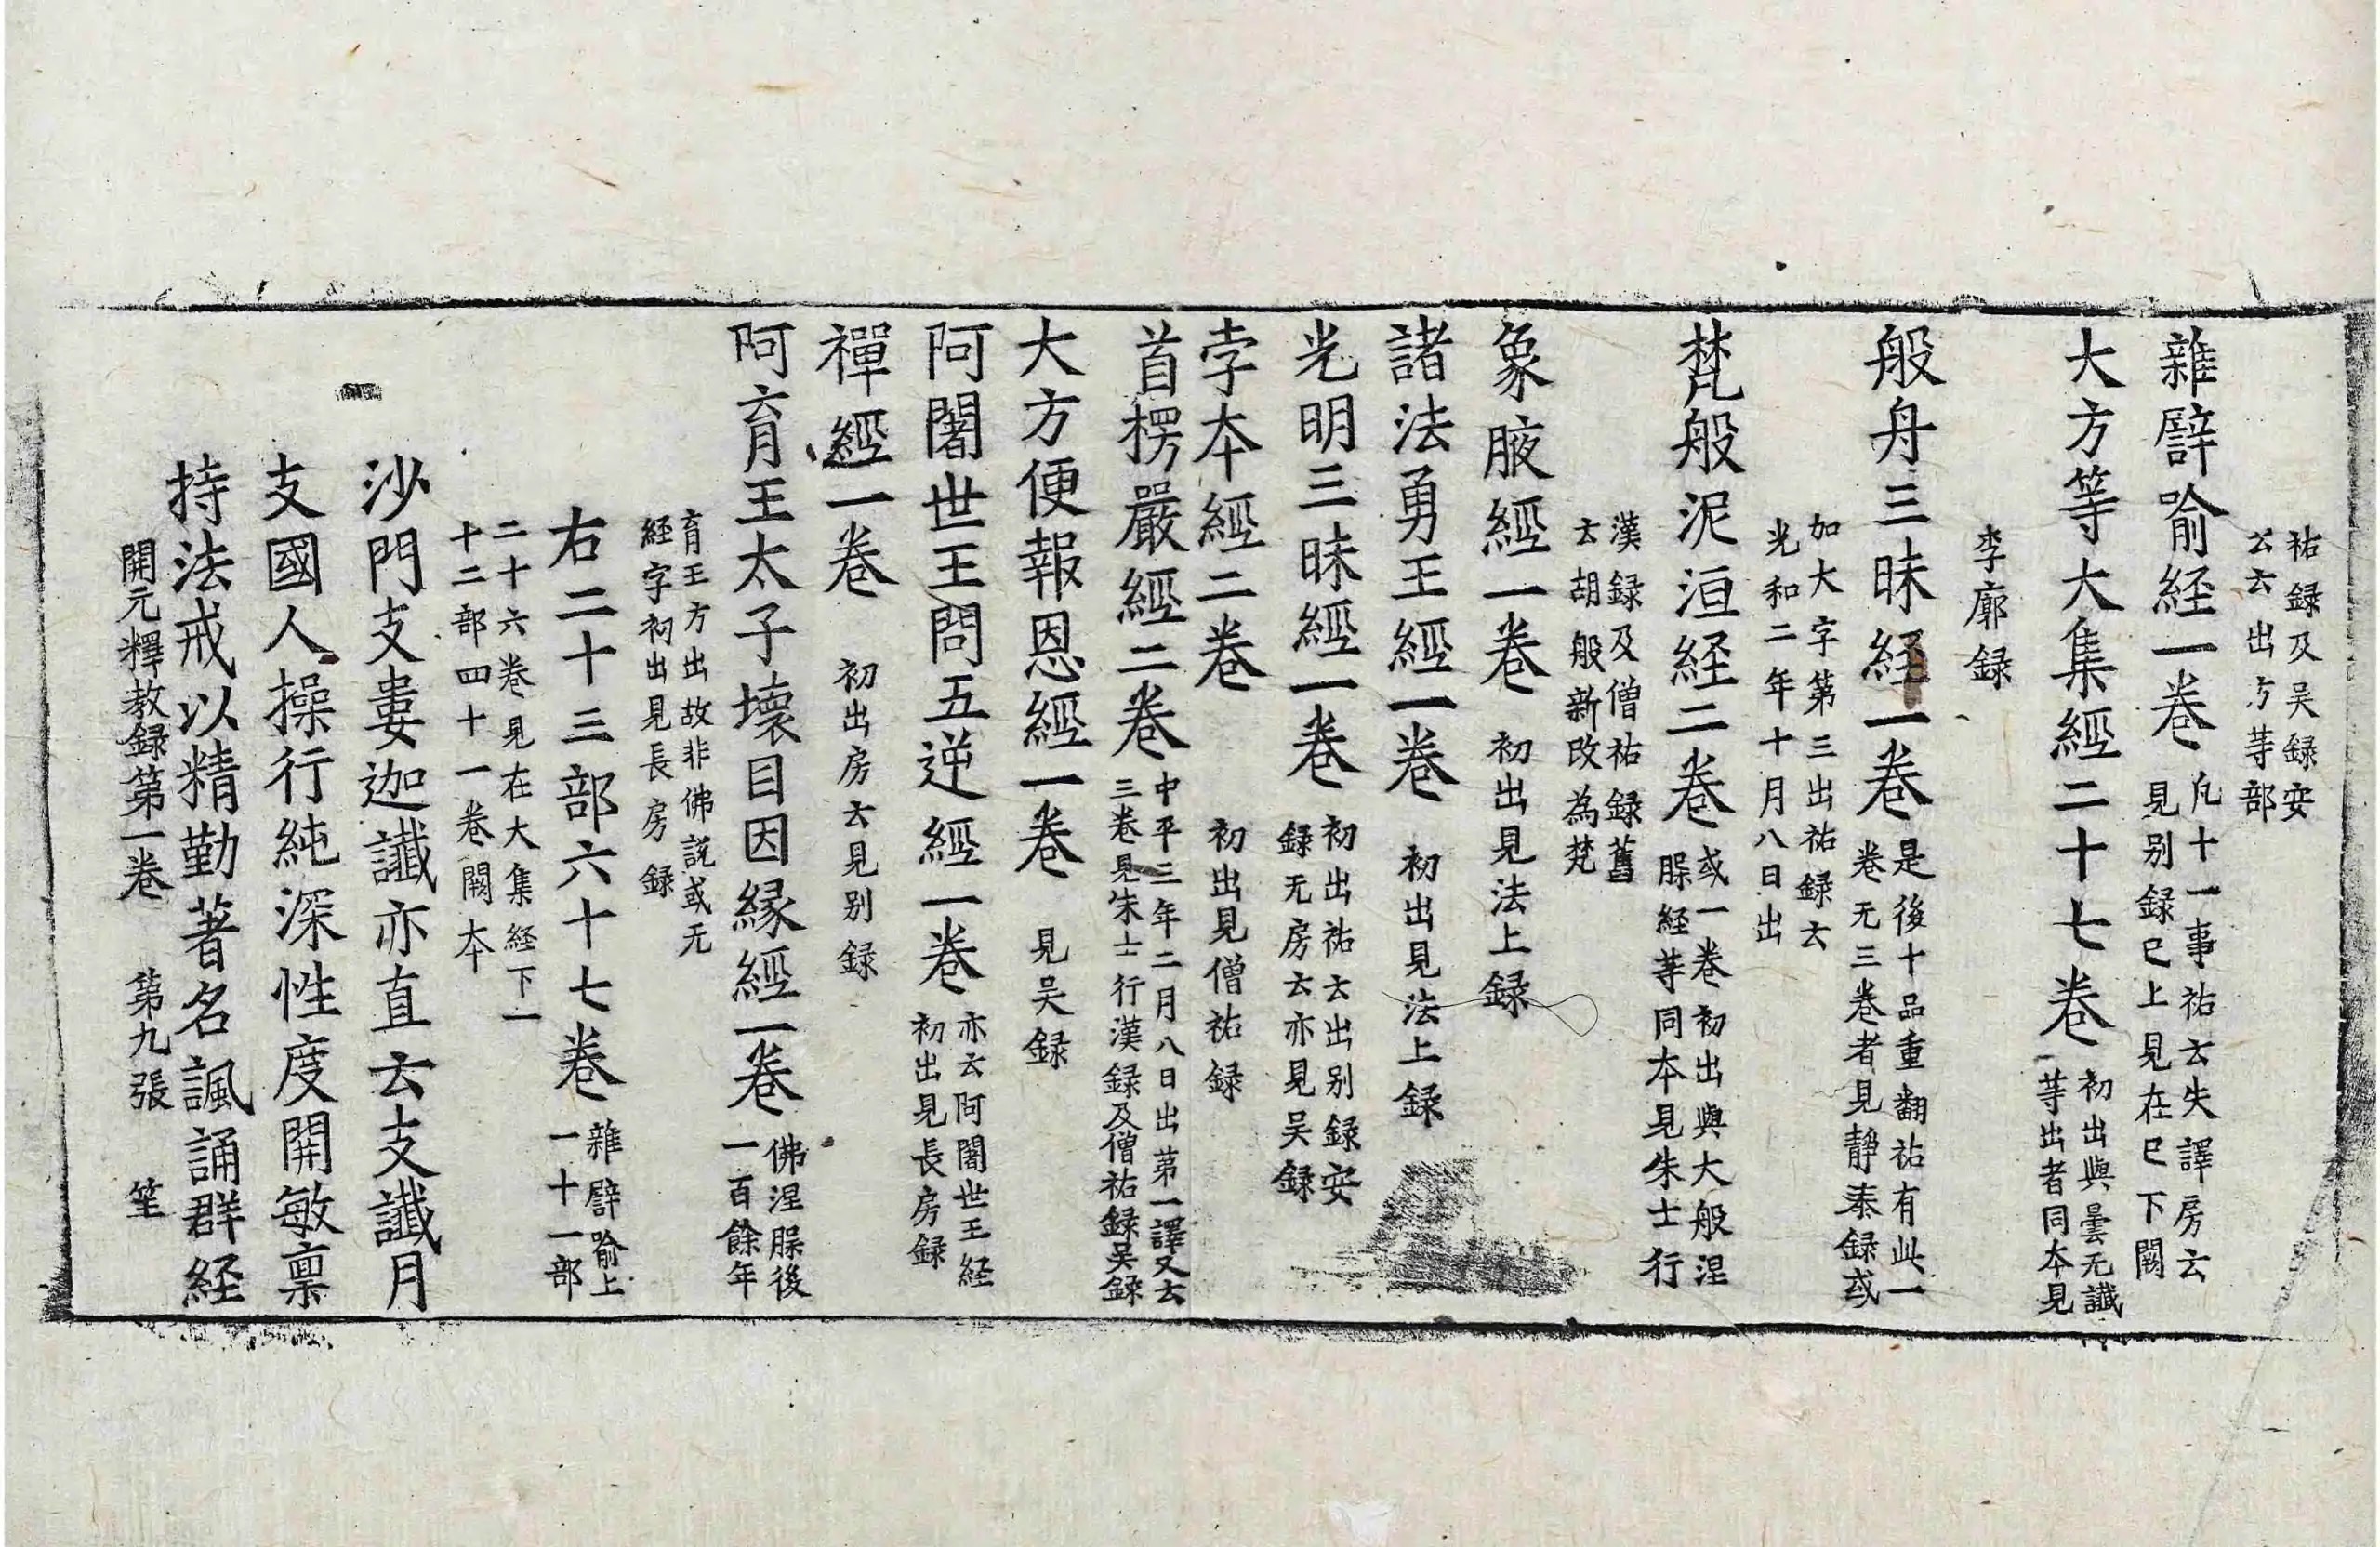 祐録及吴録安
公云出方等部
雜譬喻経一卷 凡十一事祐云失譯房云
見别録已上見在已下闕
大方等大集經二十七卷 初出與曇无讖
等出者同本見
李廓録
般舟三昧経一卷 是後十品重翻祐有此一
卷无三卷者見靜泰録或
加大字第三出祐録云
光和二年十月八日出
梵般泥洹経二卷 或一卷初出與大般涅
槃経等同本見朱士行
漢録及僧祐録舊
云胡般新改為梵
象腋經一卷 初出見法上録
諸法勇王經一卷 初出見法上録
光明三昧經一卷 初出祐云出别録安
録无房云亦見吴録
孛本經二卷 初出見僧祐録
首楞嚴經二卷 中平三年二月八日出第一譯又云
三卷見朱士行漢録及僧祐録吴録
大方便報恩經一卷 見吴録
阿闍世王問五逆經一卷 亦云阿闍世王経
初出見長房録
禪經一卷 初出房云見别録
阿育王太子壞目因縁經一卷 佛涅槃後
一百餘年
育王方出故非佛説或无
経字初出見長房録
右二十三部六十七卷 雜譬喻上
一十一部
二十六卷見在大集経下一
十二部四十一卷闕本
沙門支婁迦讖亦直云支讖月
支國人操行純深性度開敏禀
持法戒以精勤著名諷誦群経
開元釋教録第一卷 第九張 笙